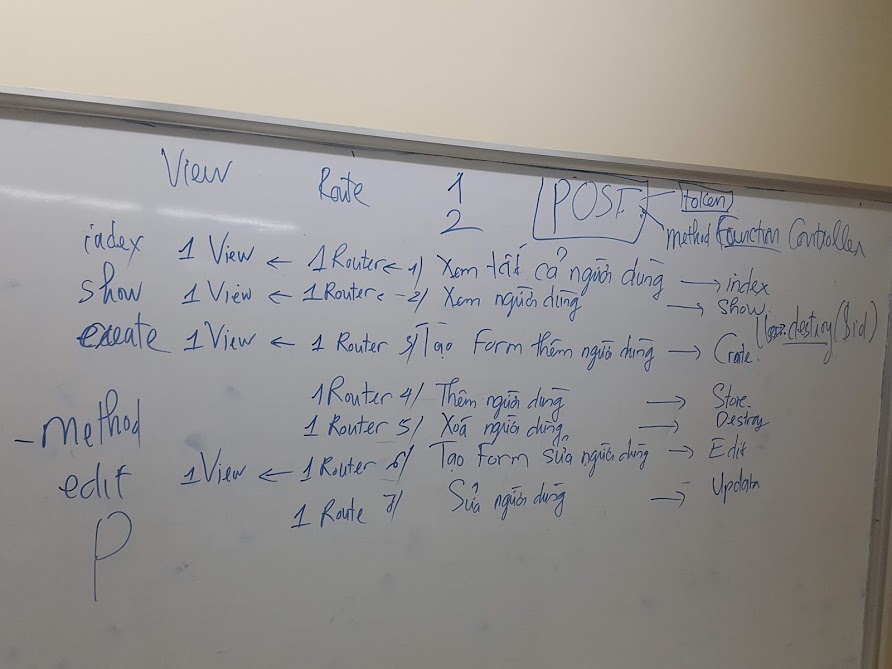 View Route 1 POST token
2 method Function Controller
index 1 View ← 1 Router ← 1) Xem tất cả người dùng → index
show 1 View ← 1 Router ← 2) Xem người dùng → show
destroy($id)
create 1 View ← 1 Router 3/ Tạo Form thêm người dùng → Crate
1 Router 4/ Thêm người dùng → Store
- method 1 Router 5/ Xoá người dùng → Destroy
edit 1 View ← 1 Router 6/ Tạo Form sửa người dùng → Edit
1 Route 7/ Sửa người dùng → Updata
P